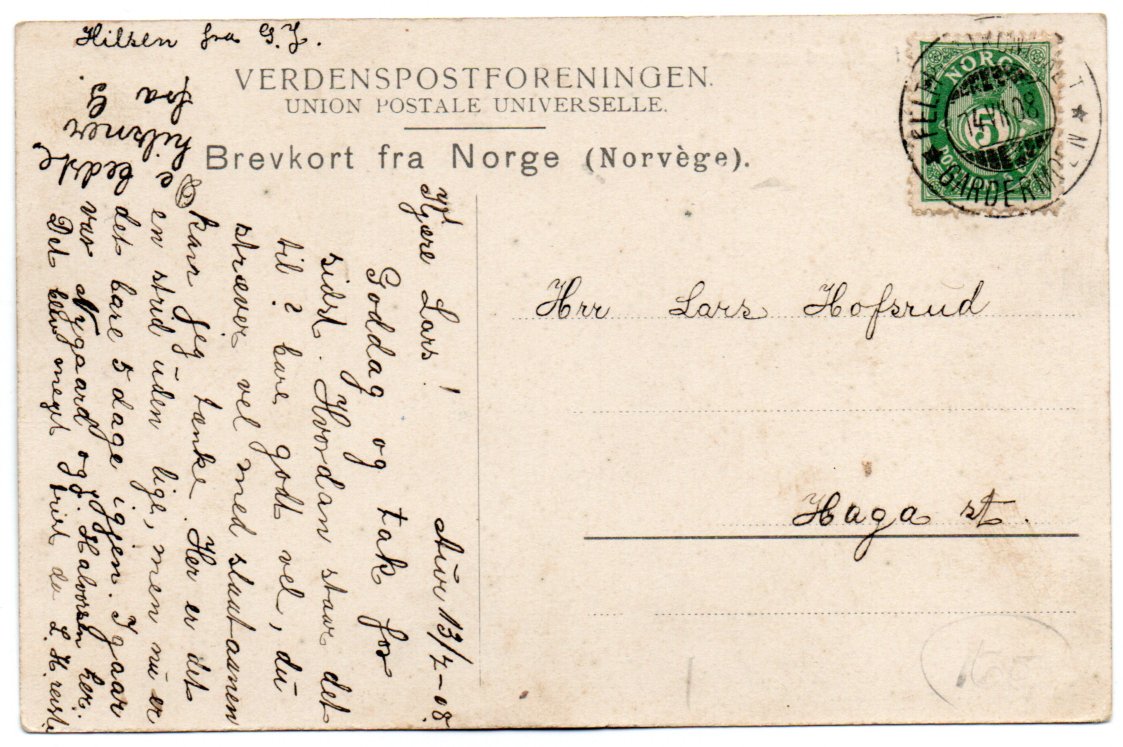 Hilsen fra G. J.
VERDENSPOSTFORENINGEN.
UNION POSTALE UNIVERSELLE.
Brevkort fra Norge (Norvège).
NORGE
5
14 VII 08
GARDERMO
Aur 13/7-08.
Kjære Lars!
Goddag og tak for
sidst. Hvordan staar det
til? bare godt vel, du
stræver vel med slaataanen
kan jeg tænke. Her er det
en strid uden lige, men nu er
det bare 5 dage igjen. I gaar
var Nygaard og J. Halvorsen her.
Det blev meget trist da L. H. reiste
bedste
hilsner
fra G.
Hrr Lars Hofsrud
Haga st.